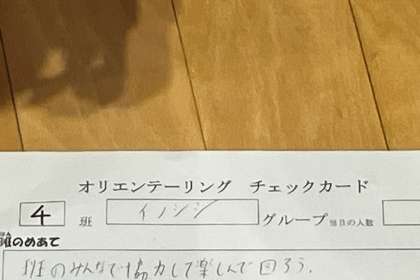 オリエンテーリング チェックカード
4 班 イノシシ グループ 当日の人数
班のめあて
班のみんなで協力して楽しんで回ろう.